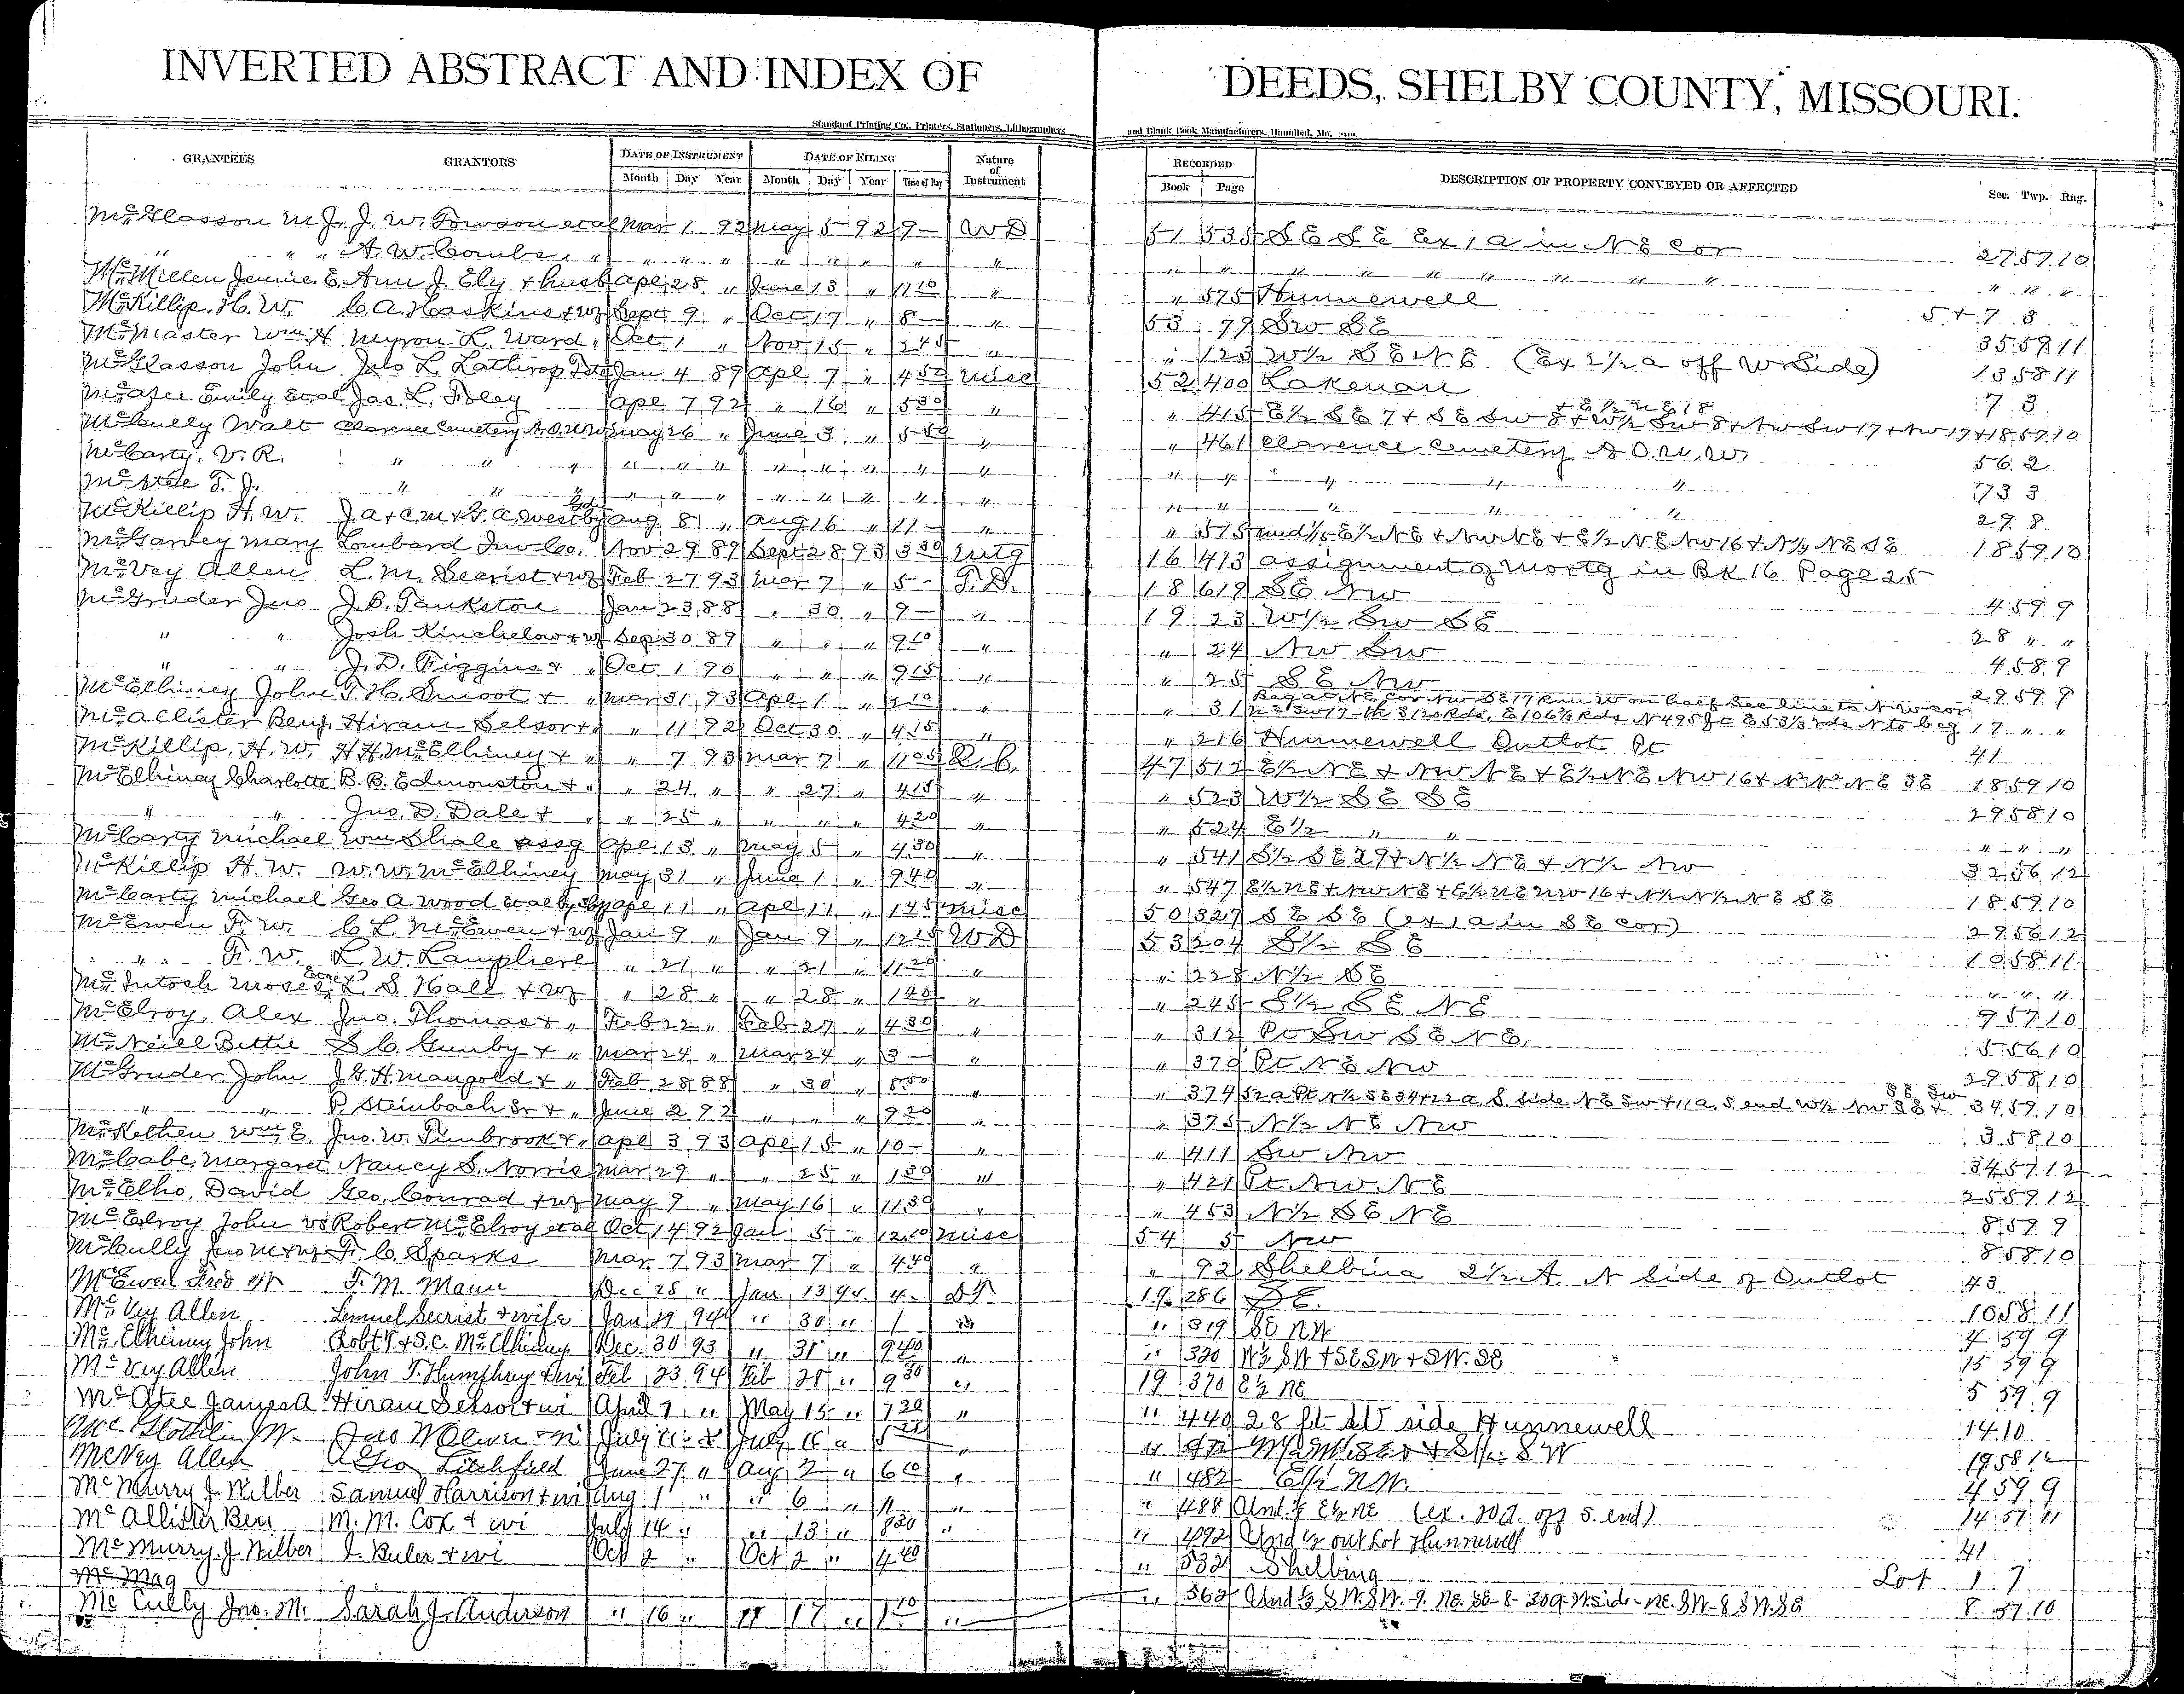 INVERTED ABSTRACT AND INDEX OF DEEDS, SHELBY COUNTY, MISSOURI.
Standard Printing Co., Printers, Stationers, Lithographers and Blank Book Manufacturers, Hannibal, Mo.
GRANTEES GRANTORS DATE OF INSTRUMENT DATE OF FILING Nature of Instrument RECORDED DESCRIPTION OF PROPERTY CONVEYED OR AFFECTED Sec. Twp. Rng.
Month Day Year Month Day Year Time of Day Book Page
McGlasson M J. J. W. Towson et al Mar 1 92 May 5 92 9– WD 51 535 SE SE Ex 1 a in NE Cor 27 57 10
" " " A. W. Combs " " " " " " " " " " " " " " " " " " " "
McMillen Jennie E. Ann J. Ely + husb Apl 28 " June 13 " 11 10 " " 575 Hunnewell 5+7 8
McKillip. H. W. C. A. Haskins + wf Sept 9 " Oct 17 " 8– " 53 79 SW SE 35 59 11
McMaster Wm H Myron L. Ward " Oct 1 " Nov 15 " 2 45 " " 123 W½ SE NE (Ex 2½ a off W Side) 13 58 11
McGlasson John Jno L. Lathrop Tste Jan 4 89 Apl 7 " 4 50 Misc 52 400 Lakenan 7 3
McAfee Emily et al Jas. L. Foley Apl 7 92 " 16 " 5 30 " " 415 E½ SE 7 + SE SW 8 + W½ SW 8 + NW SW 17 + NW 17 + + E½ NE 18 18 57 10
McCully Walt Clarence Cemetery A.O.U.W. May 26 " June 3 " 5 50 " " 461 Clarence Cemetery A.O.U.W. 56 2
McCarty. V. R. " " " " " " " " " " " " " " " " 73 3
McAtee T. J. " " " " " " " " " " " " " " " 29 8
McKillip H. W. J. A + C. M + G. A. Westby Aug 8 " Aug 16 " 11– " " 515 und ⅓ E½ NE + NW NE + E½ NE NW 16 + N½ NE SE 18 59 10
McGarvey Mary Lombard Inv Co. Nov 29 89 Sept 28 93 3 30 Mtg 16 413 Assignment of Mortg in BK 16 Page 25
McVey Allen L. M. Secrist + wf Feb 27 93 Mar 7 " 5– T. D. 18 619 SE NW 4 59 9
McGruder Jno J. B. Tankston Jan 23 88 " 30 " 9– " 19 23 W½ SW SE 28 " "
" " Josh Kincheloe + wf Sep 30 89 " " " 9 10 " " 24 NW SW 4 58 9
" " J. D. Figgins + " Oct 1 90 " " " 9 15 " " 25 SE NW 29 59 9
McElhiney John T. H. Smoot + " Mar 31 93 Apl 1 " 2 10 " " 31 Beg at NE Cor NW SE 17 Run W on half Sec line to NW cor NE SW 17 – th S 120 Rds, E 106⅔ Rds N 495 ft E 53⅓ rds N to beg 17 " "
McAllister Benj. Hiram Selsor + " " 11 92 Oct 30 " 4 15 " " 216 Hunnewell Outlot Pt 41
McKillip. H. W. H H. McElhiney + " " 7 93 Mar 7 " 11 05 Q. C. 47 512 E½ NE + NW NE + E½ NE NW 16 + N½ N½ NE SE 18 59 10
McElhiney Charlotte B. B. Edmonston + " " 24 " " 27 " 4 15 " " 523 W½ SE SE 29 58 10
" " Jno. D. Dale + " " 25 " " " " 4 20 " " 524 E½ " " " " "
McCarty Michael Wm Shale assg Apl 13 " May 5 " 4 30 " " 541 S½ SE 29 + N½ NE + N½ NW 32 56 12
McKillip H. W. W. W. McElhiney May 31 " June 1 " 9 40 " " 547 E½ NE + NW NE + E½ NE NW 16 + N½ N½ NE SE 18 59 10
McCarty Michael Geo A. Wood et al Apl 11 " Apl 11 " 1 45 Misc 50 327 SE SE (ex 1 a in SE cor) 29 56 12
McEwen F. W. C L. McEwen + wf Jan 9 " Jan 9 " 12 15 WD 53 204 S½ SE 10 58 11
" F. W. L. W. Lamphere " 21 " " 21 " 11 20 " " 228 N½ SE " " "
McIntosh Moses L. S Hall + wf " 28 " " 28 " 1 40 " " 245 S½ SE NE 9 57 10
McElroy, Alex Jno. Thomas + " Feb 22 " Feb 27 " 4 30 " " 312 Pt SW SE NE, 5 56 10
McNeill Bettie S C. Gunby + " Mar 24 " Mar 24 " 3– " " 370 Pt NE NW 29 58 10
McGruder John J. G. H. Mangold + " Feb 28 88 " 30 " 8 50 " " 374 52 a Pt N½ SE 34 + 22 a, S. side NE SW + 11 a. S end W½ NW SE + SE SW 34 59 10
" " P. Steinbach Sr + " June 2 92 " " " 9 20 " " 375 N½ NE NW 3 58 10
McKethen Wm E. Jno. W. Timbrook + " Apl 3 93 Apl 15 " 10– " " 411 SW NW 34 57 12
McCabe, Margaret Nancy S. Norris Mar 29 " " 25 " 1 30 " " 421 Pt NW NE 25 59 12
McElho, David Geo. Conrad + wf May 9 " May 16 " 11 30 " " 453 N½ SE NE 8 59 9
McElroy John vs Robert McElroy et al Oct 14 92 Jan 5 " 12 10 Misc 54 5 NW 8 58 10
McCully Jno M + wf F. C. Sparks Mar 7 93 Mar 7 " 4 40 " " 92 Shelbina 2½ A N Side of Outlot 43
McEwen Fred W F. M. Mann Dec 28 " Jan 13 94 4– DT 19 286 SE. 10 58 11
McVey Allen Lemuel Secrist + wife Jan 29 94 " 30 " 1 " " 319 SE NW 4 59 9
McElhiney John Robt T. + S. C. McElhiney Dec. 30 93 " 31 " 9 40 " " 320 W½ SW + SE SW + SW. SE 15 59 9
McVey Allen John T. Humphrey + wi Feb 23 94 Feb 28 " 9 30 " 19 370 E½ NE 5 59 9
McAtee James A Hiram Selsor + wi April 7 " May 15 " 7 20 " " 440 28 ft W side Hunnewell 14 10
July 16 " " SW 19 58 12
McVey Allen Geo Litchfield June 27 " Aug 2 " 6 10 " " 482 E½ NW. 4 59 9
McMurry J. Wilber Samuel Harrison + wi Aug 1 " " 6 " " " 488 Und. ½ E½ NE (ex. 20 a. off S. end) 14 57 11
McAllister Ben M. M. Cox + wi July 14 " " 13 " 8 30 " " 492 Und ½ out Lot Hunnewell 41
McMurry. J. Wilber I. Buler + wi Oct 2 " Oct 2 " 4 40 " 532 Shelbina Lot 1. 7
Mc Mag
McCully Jno. M. Sarah J. Anderson " 16 " " 17 " 1 10 " " 562 Und ½ SW. SW. 9. NE. SE - 8 - 30 a. N side - NE. SW - 8 SW. SE 8 57 10